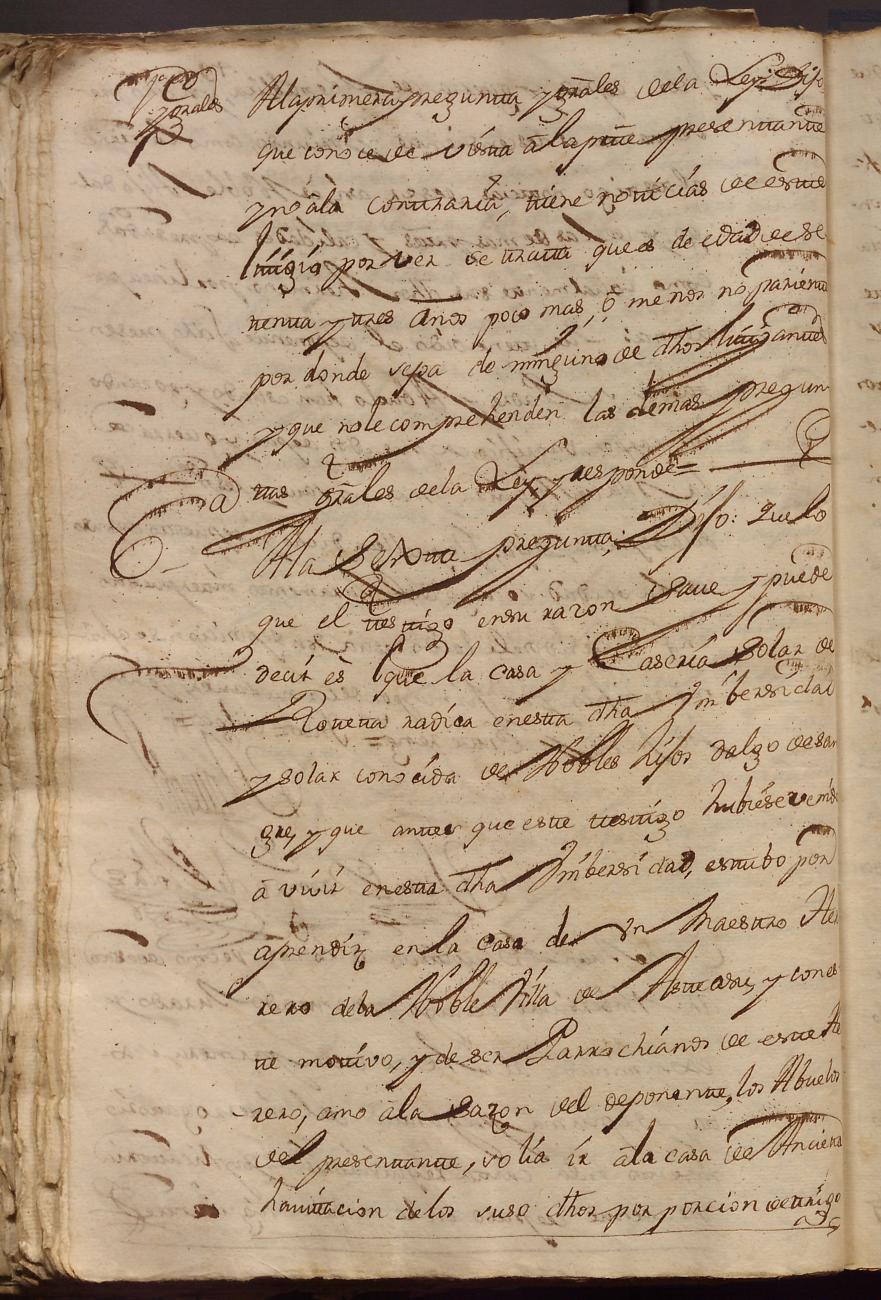 y grales
Ala primera pregunta, y grales dela Ley: Dijo
que conoce de vista â la pte presentante
y no âla contraria, tiene noticias de este
litigio por ver se trata que es de edad de se
tenta y tres años poco mas, ô menos no pariente
por donde sepa de ninguno de dhos litigantes
y que nole comprehenden las demas pregun
tas grales dela Ley y responde=
Ala Sexta pregunta; Dijo: que lo
que el testigo en su razon save y puede
decir ês que la casa y Caseria Solar de
radica en esta dha Imbersidad
y solar conocida de Nobles hijos dalgo de san
gre, y que antes que este testigo hubiese venido
â vivir en esta dha Imbersidad, estubo por
aprendiz en la casa de Vn Maestro Her
rero dela Noble Villa de y con es
te motivo, y de ser Parrochianos de este He
rero, amo âla sazon del deponente, los Abuelos
del presentante, solia ir âla casa de
havitacion delos suso dhos por porcion de trigo